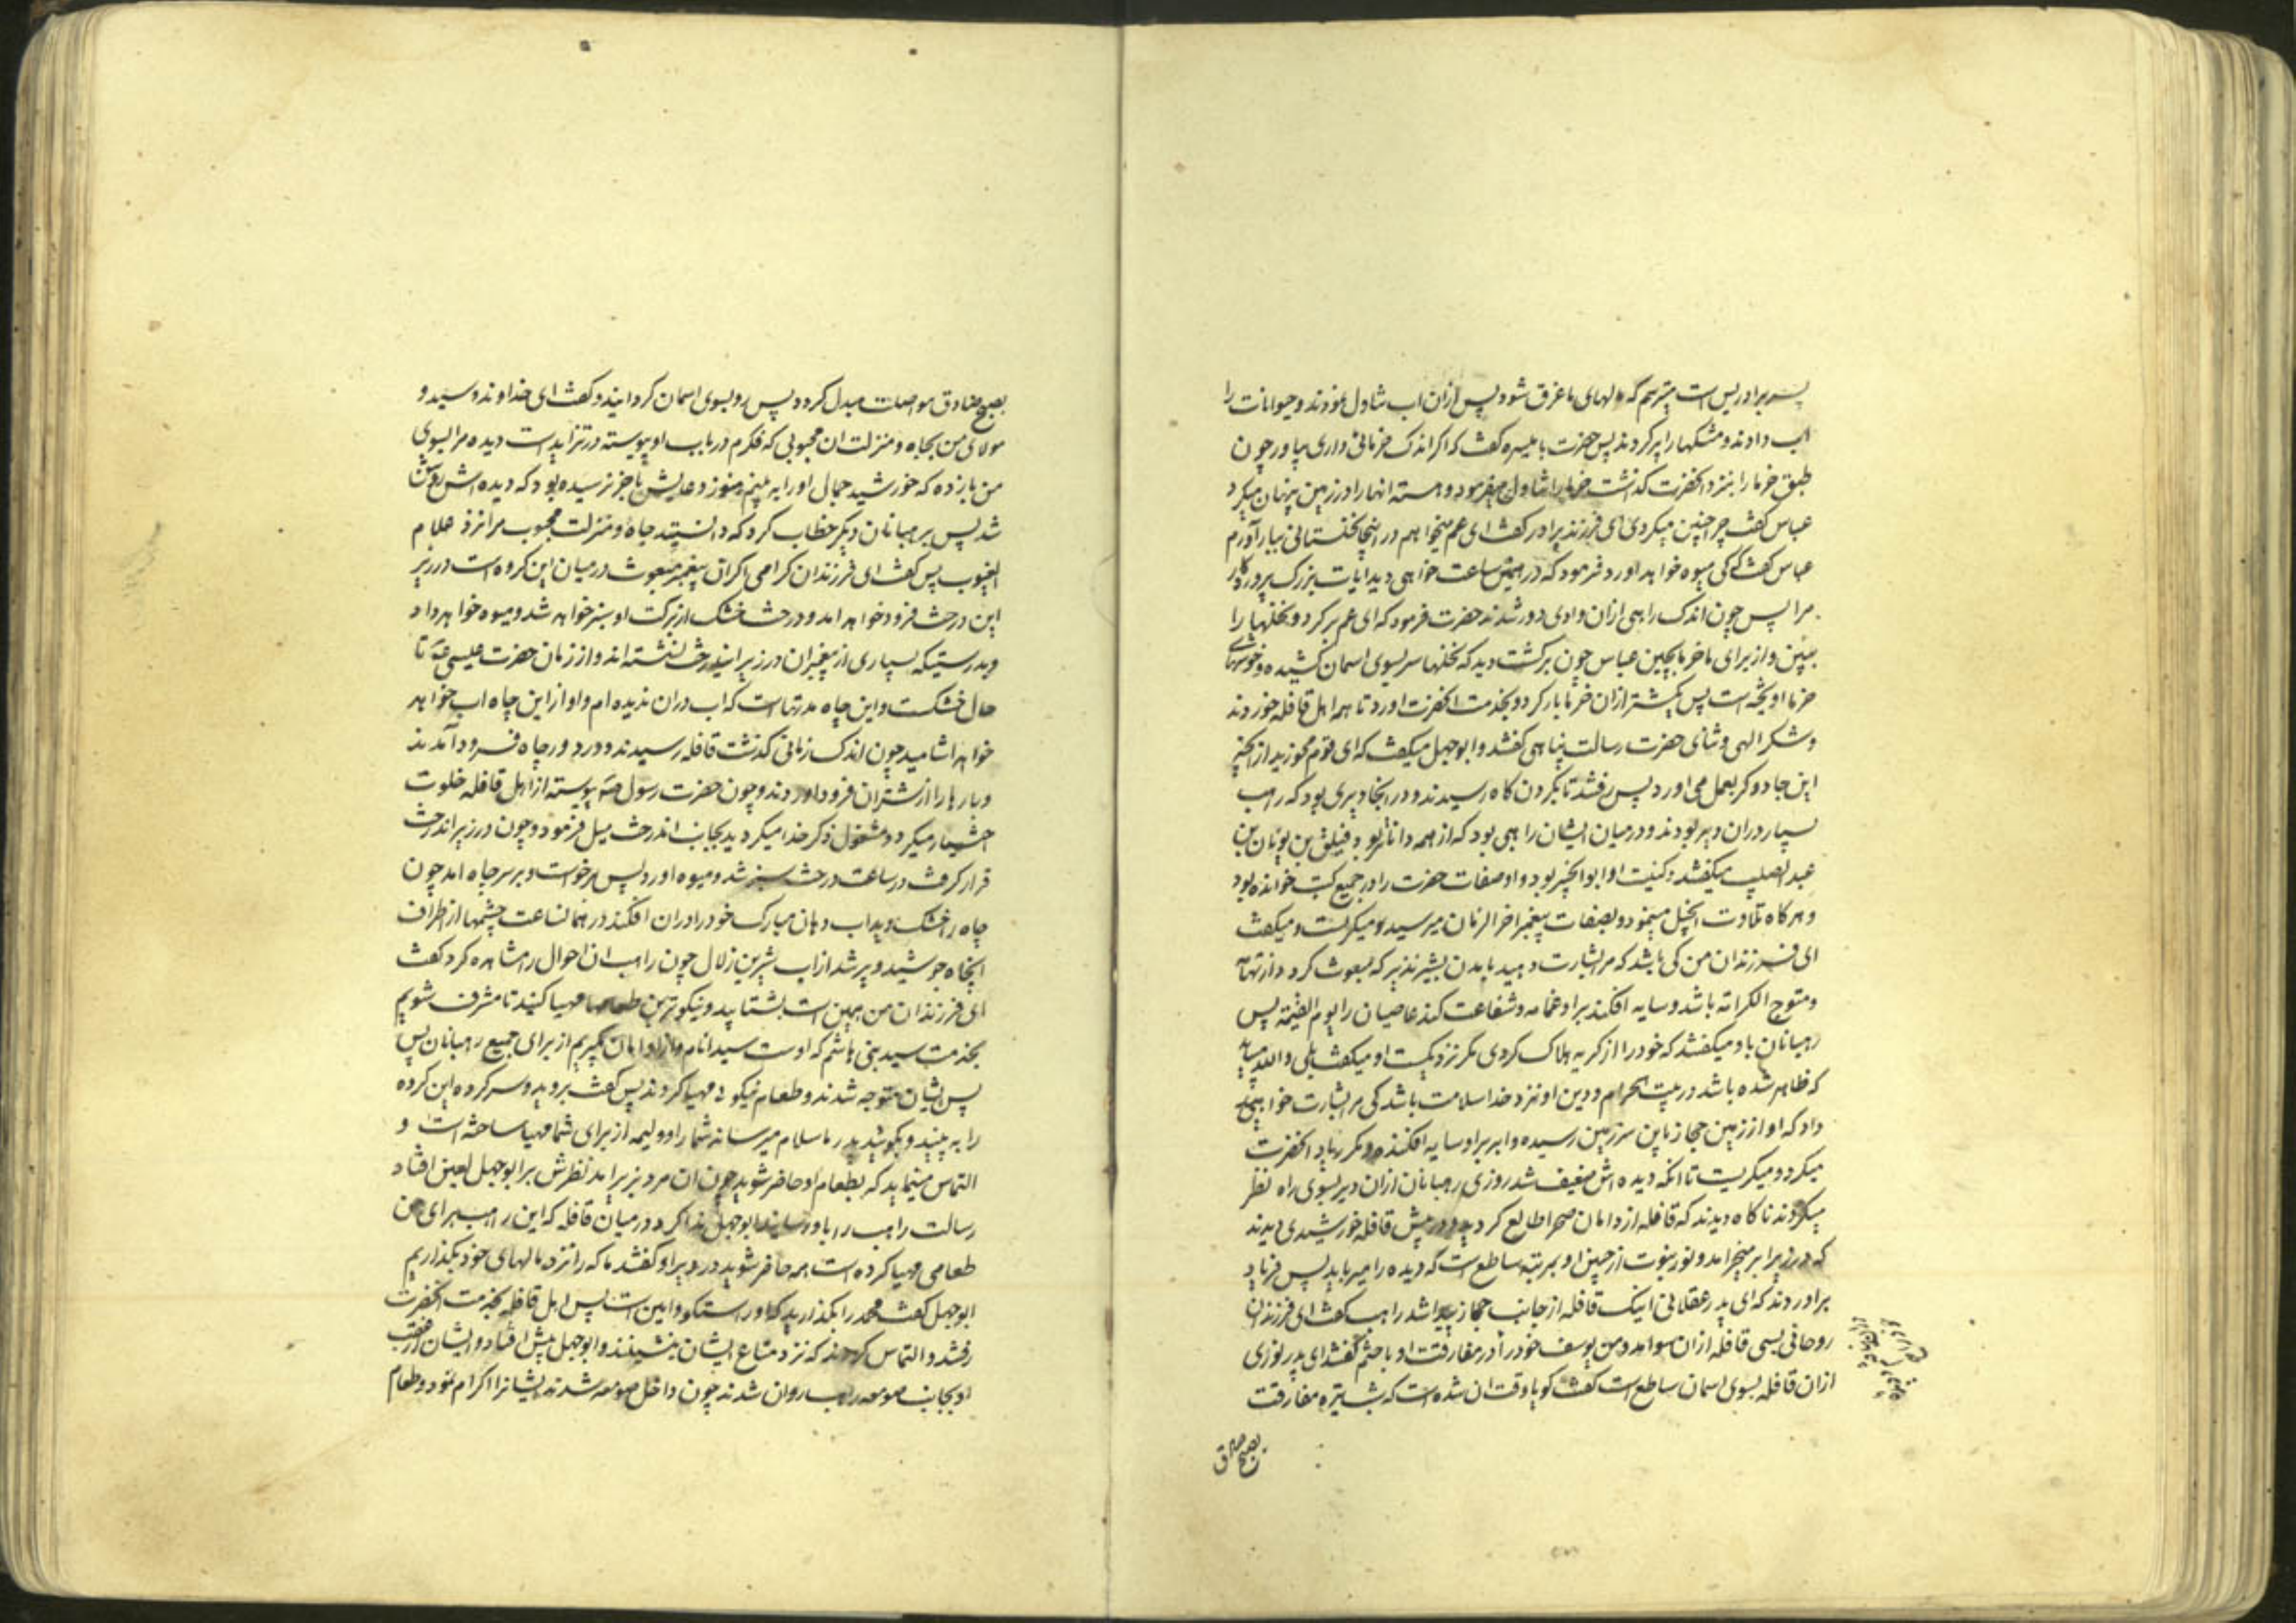 پسر برادر پس است میترسم که دلهای ما غرق شود پس ازان اب تناول نمودند و حیوانات را
اب دادند و مشکها را پر کردند پس حضرت با میسره کفت که اکر اندک خرمائی داری بیاور چون
طبق خرما را بنزد انحضرت کذاشت خرما را تناول میفرمود و هسته انها را در زمین پنهان میکرد
عباس کفت چرا چنین میکردی ای فرزند برادر کفت ای عم میخواهم در اینجا نخلستانی بیار آورم
عباس کفت کی میوه خواهد اورد فرمود که در همین ساعت خواهی دید ایات بزرک پروردکار
مرا پس چون اندک راهی ازان وادی دور شدند حضرت فرمود که ای عم برکرد و نخلها را
ببین و از برای ما خرما بچین عباس چون برکشت دید که نخلها سر بسوی اسمان کشیده و خوشهای
خرما اویخته است پس یکشتر ازان خرما بار کرد و بخدمت انحضرت اورد تا همه اهل قافله خوردند
و شکر الهی و ثنای حضرت رسالت پناهی کفتند و ابوجهل میکفت که ای قوم مخورید از انچه
این جادوکر بعمل می اورد پس رفتند تا بکردن کاه رسیدند و در انجا دیری بود که راهب
بسیار دران دیر بودند و در میان ایشان راهبی بود که از همه داناتر بود و فیلق بن یونان بن
عبد الصلیب میکفتند و کنیت او ابو الخیر بود و اوصفات حضرت را در جمیع کتب خوانده بود
و هر کاه تلاوت انجیل مینمود و بصفات پیغمبر اخر الزمان میرسید و میکریست و میکفت
ای فرزندان من کی باشد که مرا بشارت دهید بامدن بشیر نذیر که مبعوث کردد از تهامه
و متوج الکرامه باشد و سایه افکند بر او غمامه و شفاعت کند عاصیان را یوم القیمة پس
رهبانان باو میکفتند که خود را از کریه هلاک کردی مکر نزدیکست او میکفت بلی والله میاید
که ظاهر شده باشد در بیت الحرام و دین او نزد خدا سلامت باشد کی مرا بشارت خواهید
داد که او از زمین حجاز باین سرزمین رسیده و ابر بر او سایه افکنده و مکرر یاد انحضرت
میکرد و میکریست تا انکه دیده اش ضعیف شد روزی رهبانان ازان دیر بسوی راه نظر
میکردند ناکاه دیدند که قافله از دامان صحرا طالع کردید و در پیش قافله خورشیدی دیدند
که در زیر ابر میخرامد و نور نبوت از جبین او بمرتبه ساطع است که دیده را میرباید پس فریاد
براوردند که ای پدر عقلانی اینک قافله از جانب حجاز پیدا شد راهب کفت ای فرزندان
روحانی بسی قافله ازان سو امد و من یوسف خود را در مفارقت او باختم کفتند ای پدر نوری
ازان قافله بسوی اسمان ساطع است کفت کویا وقت ان شده است که شب تیره مفارقت
بصبح صادق
بصبح صادق مواصلت مبدل کردد پس رو بسوی اسمان کردانید و کفت ای خداوند و سید و
مولای من بجاه و منزلت ان محبوبی که فکرم در باب او پیوسته در تزاید است دیده مرا بسوی
من بازده که خورشید جمال او را به بینم هنوز دعایش باخر نرسیده بود که دیده اش روشن
شد پس برهبانان دیکر خطاب کرد که دانستید جاه و منزلت محبوب مرا نزد علام
الغیوب پس کفت ای فرزندان کرامی اکر ان پیغمبر مبعوث در میان این کروه است در زیر
این درخت فرود خواهد امد و درخت خشک از برکت او سبز خواهد شد و میوه خواهد داد
و بدرستیکه بسیاری از پیغمبران در زیر ایندرخت نشسته اند و از زمان حضرت عیسی ع تا
حال خشکست و این چاه مدتها است که اب دران ندیده ام و او از این چاه اب خواهد
خواهد اشامید چون اندک زمانی کذشت قافله رسیدند و در دور چاه فرود آمدند
و بارها را از شتران فرود اوردند و چون حضرت رسول ص پیوسته از اهل قافله خلوت
اختیار میکرد و مشغول ذکر خدا میکردید بجانب اندرخت میل فرمود و چون در زیر اندرخت
قرار کرفت در ساعت درخت سبز شد و میوه اورد پس برخواست و بر سر چاه امد چون
چاه را خشک دید اب دهان مبارک خود را دران افکند در همانساعت چشمها از اطراف
انچاه جوشید و پر شد از اب شیرین زلال چون راهب ان احوال را مشاهده کرد کفت
ای فرزندان من همین است بشتابید و نیکوترین طعامها مهیا کنید تا مشرف شویم
بخدمت سید بنی هاشم که اوست سید انام و از او امان بکیریم از برای جمیع رهبانان پس
پس ایشان متوجه شدند و طعام نیکو مهیا کردند پس کفت بروید و سرکرده این کروه
را به بینید و بکوئید پدر ما سلام میرساند شما را و ولیمه از برای شما مهیا ساخته است و
التماس مینماید که بطعام او حاضر شوید چون ان مرد بزیر امد نظرش بر ابوجهل لعین افتاد
رسالت راهب را باو رسانید ابوجهل ندا کرد در میان قافله که این راهب برای من
طعامی مهیا کرده است همه حاضر شوید در دیر او کفتند ما که را نزد مالهای خود بکذاریم
ابوجهل کفت محمد را بکذارید که او راستکو و امین است پس اهل قافله بخدمت انحضرت
رفتند و التماس کردند که نزد متاع ایشان بنشیند و ابوجهل پیش افتاد و ایشان از عقب
او بجانب صومعه راهب روان شدند چون داخل صومعه شدند ایشانرا اکرام نمود و طعام